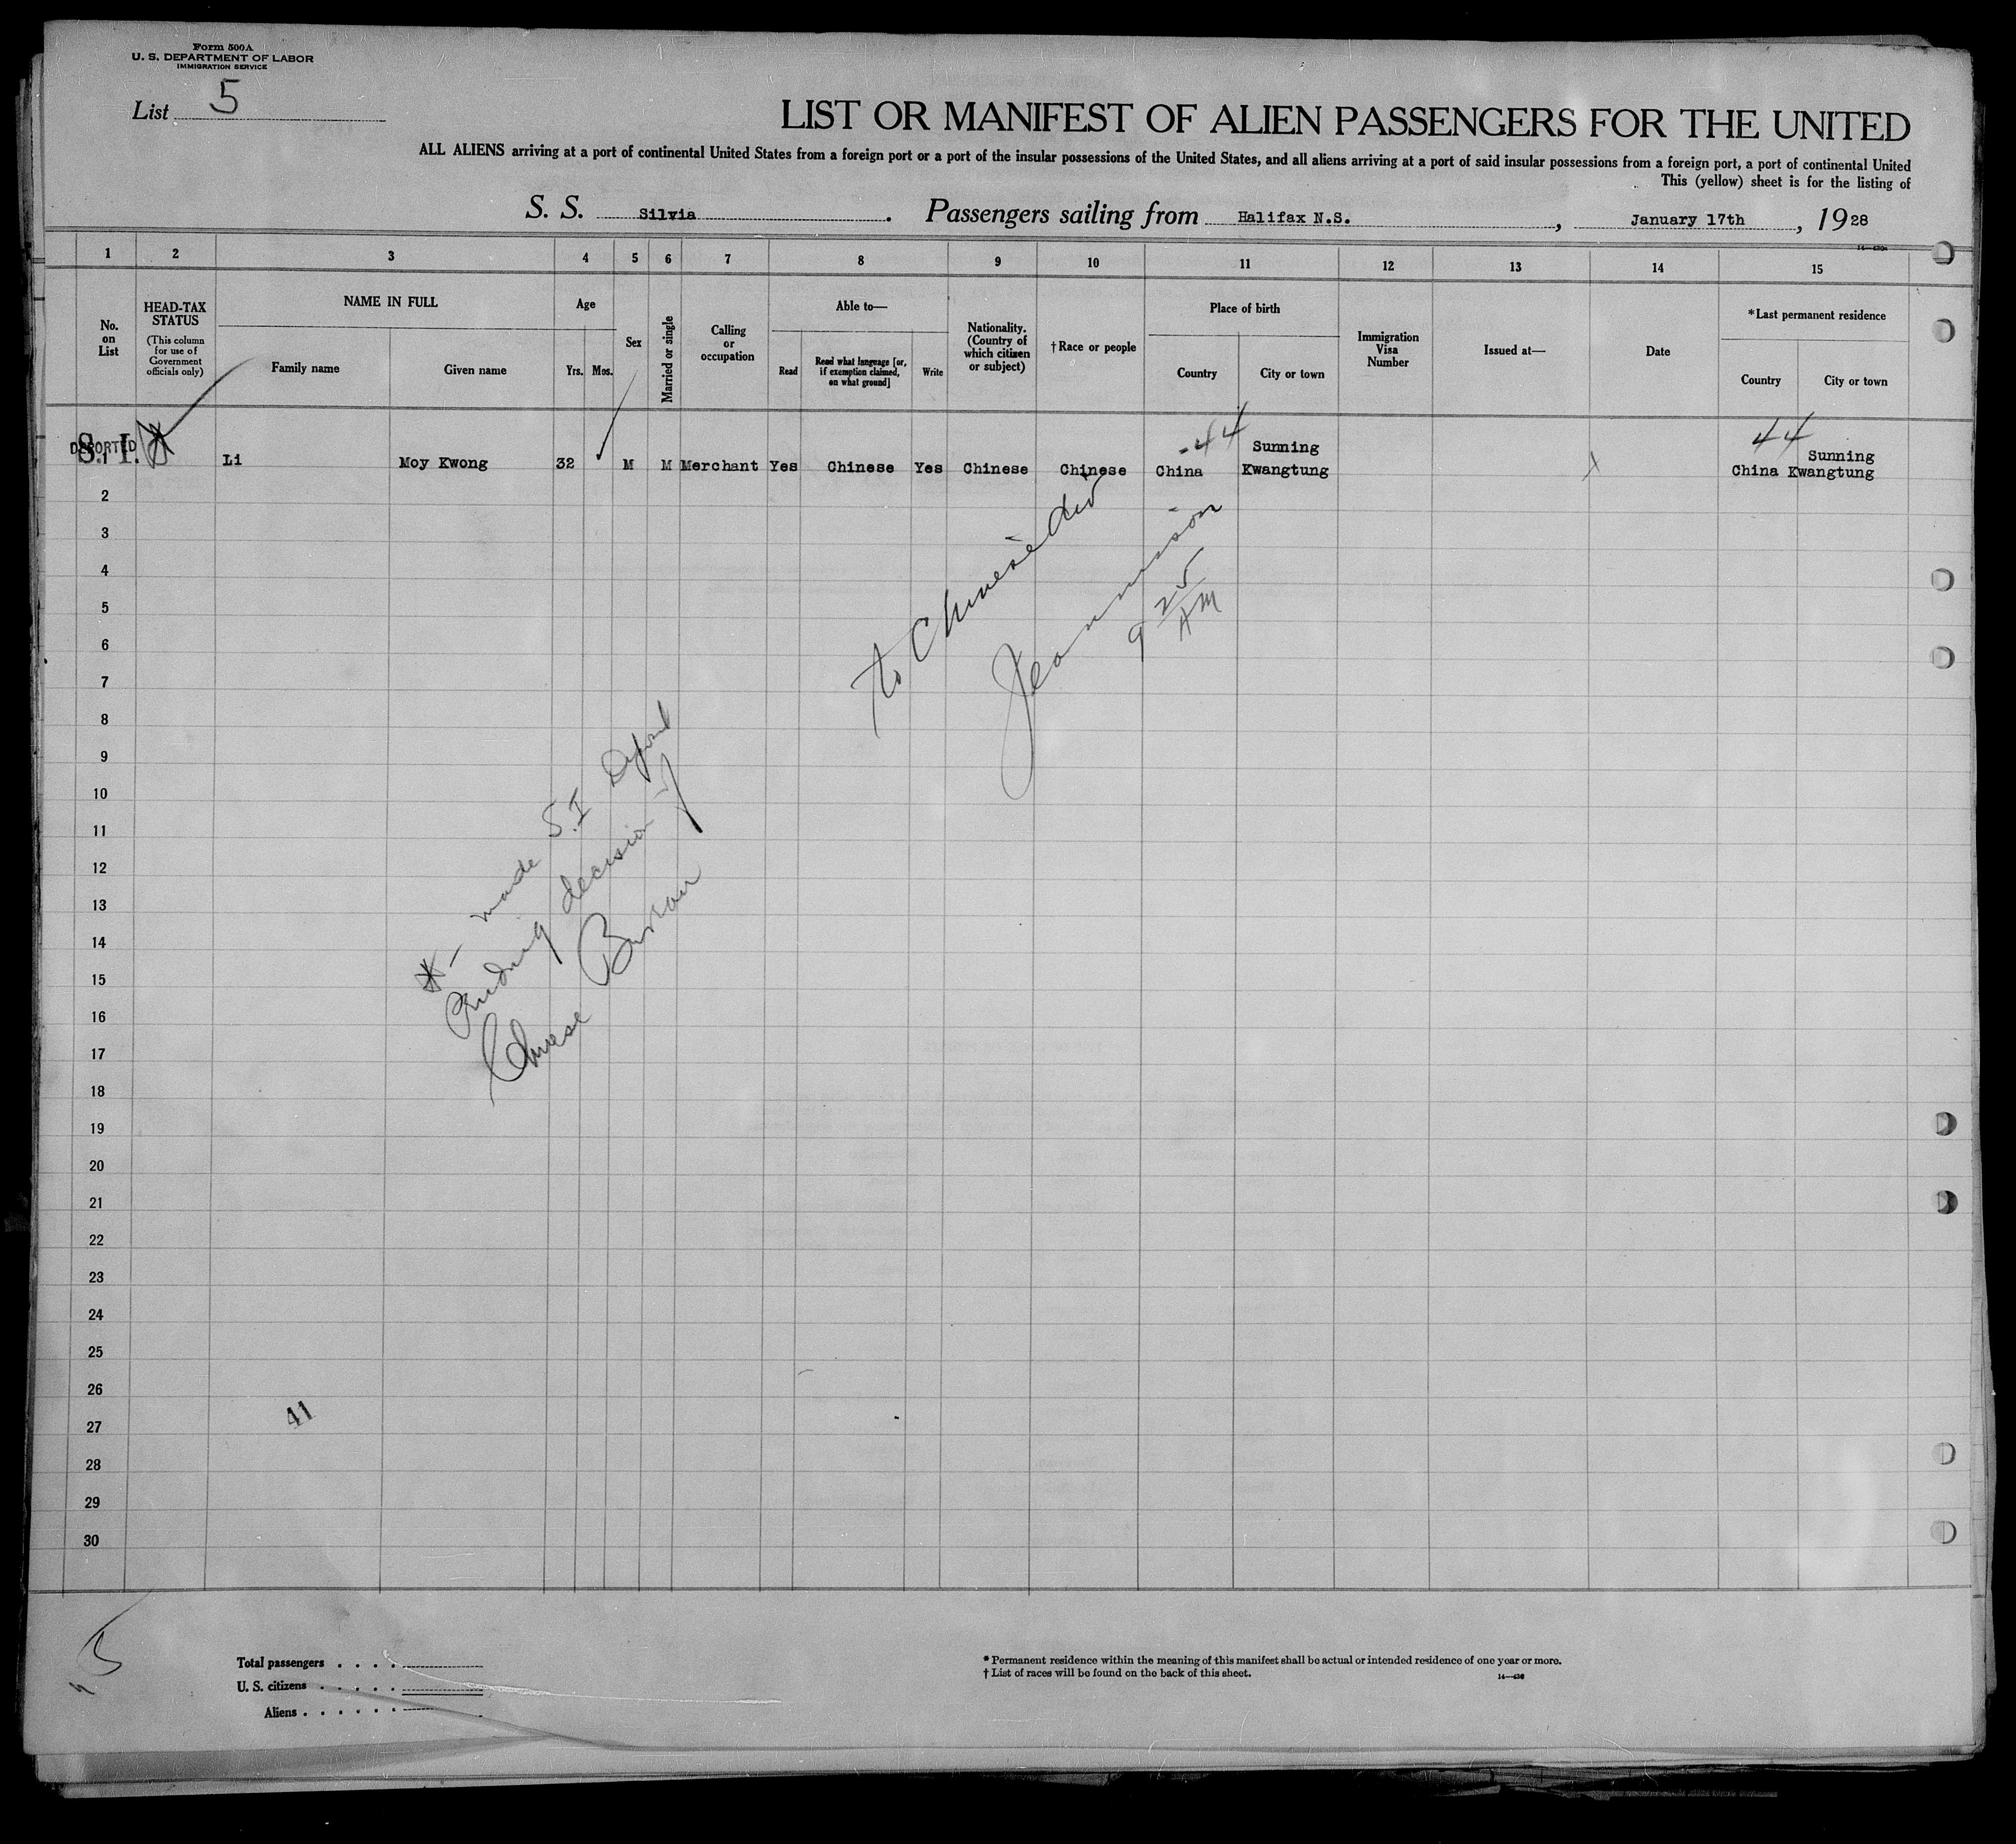 Form 500A
U. S. DEPARTMENT OF LABOR
IMMIGRATION SERVICE
List 5
LIST OR MANIFEST OF ALIEN PASSENGERS FOR THE UNITED
ALL ALIENS arriving at a port of continental United States from a foreign port or a port of the insular possessions of the United States, and all aliens arriving at a port of said insular possessions from a foreign port, a port of continental United
This (yellow) sheet is for the listing of
S. S. Silvia. Passengers sailing from Halifax N.S., January 17th, 1928
1 2 3 4 5 6 7 8 9 10 11 12 13 14 15
No. on List
HEAD-TAX STATUS
(This column for use of Government officials only)
NAME IN FULL
Family name
Given name
Age
Yrs. Mos.
Sex
Married or single
Calling or occupation
Able to—
Read
Read what language [or, if exemption claimed, on what ground]
Write
Nationality. (Country of which citizen or subject)
†Race or people
Place of birth
Country
City or town
Immigration Visa Number
Issued at—
Date
*Last permanent residence
Country
City or town
DEPORTED
S. I.
44
Sunning
44
Sunning
Li Moy Kwong 32 M M Merchant Yes Chinese Yes Chinese Chinese China Kwangtung China Kwangtung
2
3
4
5
6
7
8
9
10
11
12
13
14
15
16
17
18
19
20
21
22
23
24
25
26
27
28
29
30
to Chinese div
9 25 AM
made S.I
Pending decision of
Chinese Bureau
41
5
Total passengers
U. S. citizens
Aliens
* Permanent residence within the meaning of this manifest shall be actual or intended residence of one year or more.
† List of races will be found on the back of this sheet.
14—430